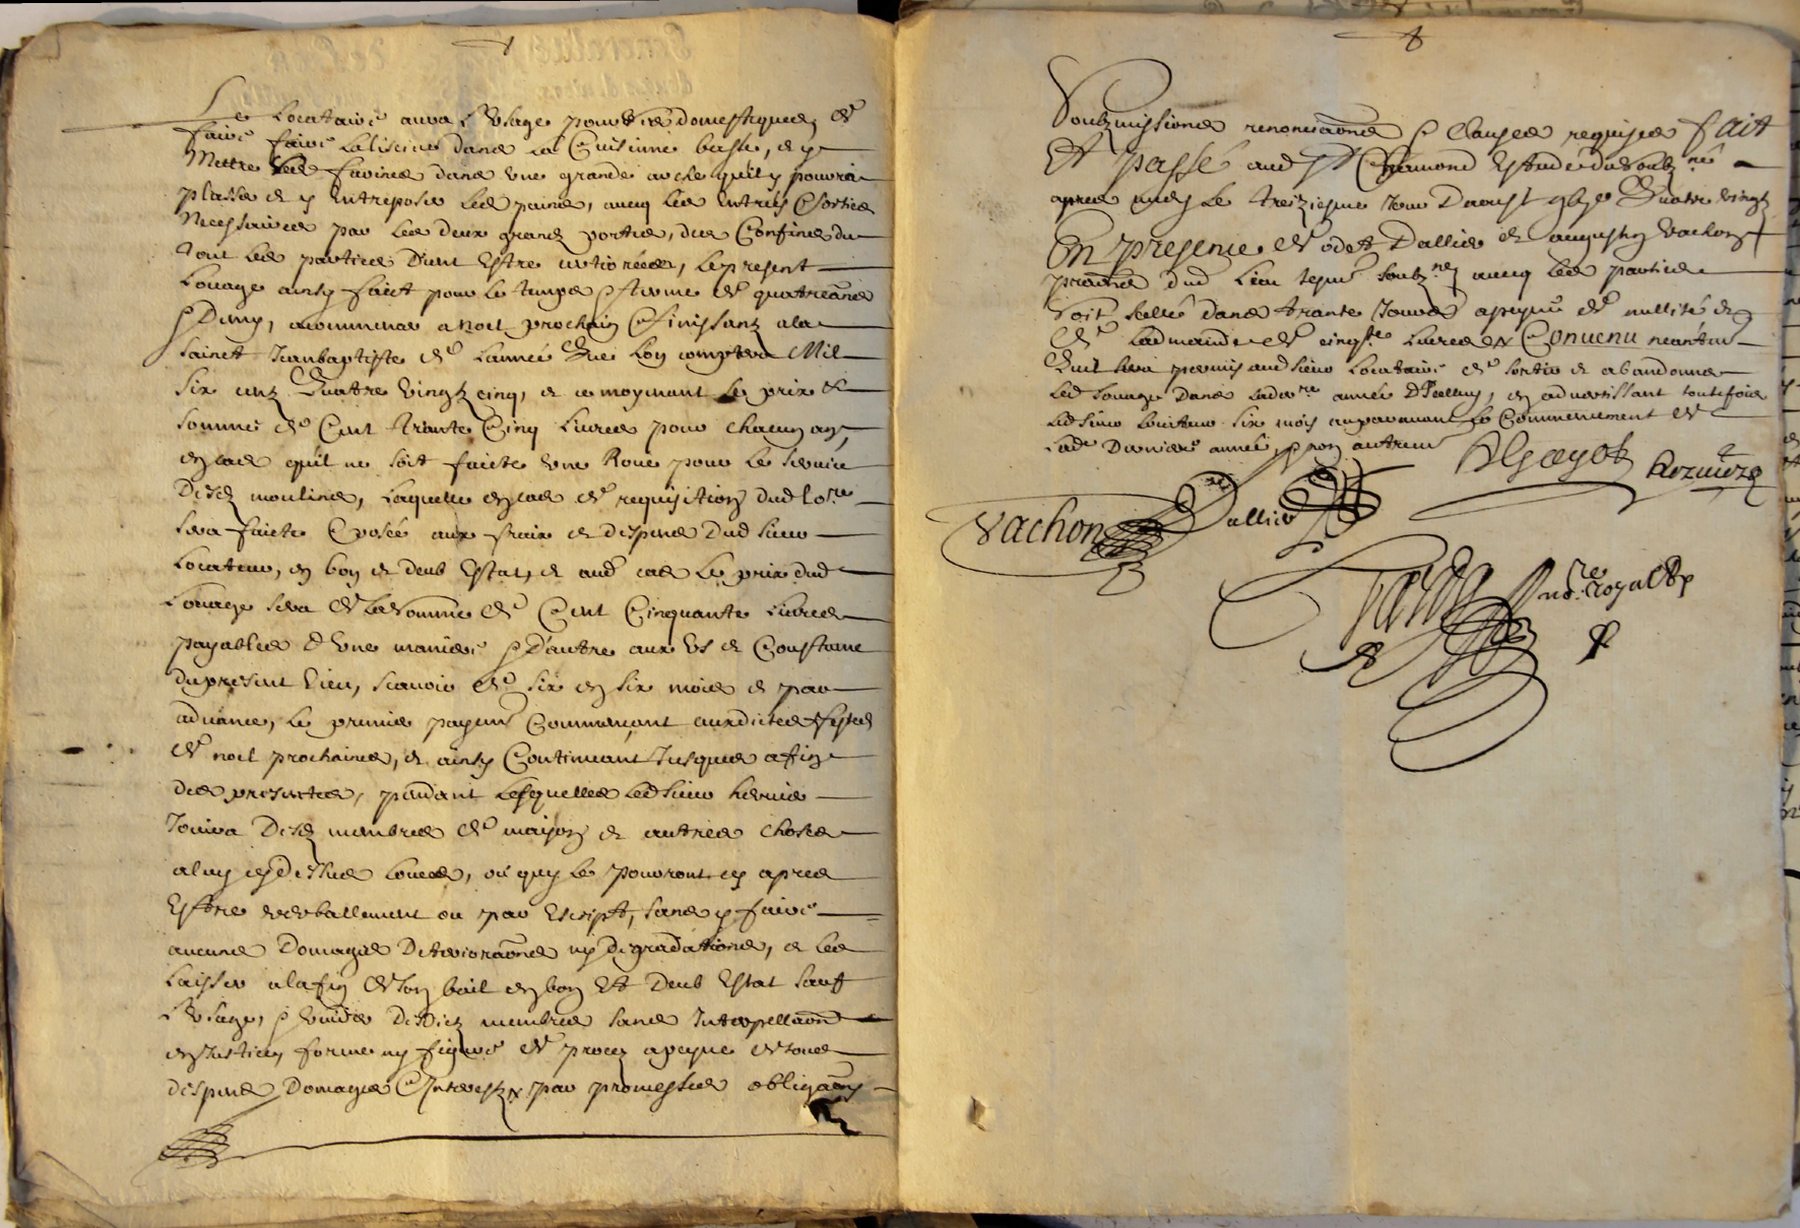 Le Locataire aura l'usage pour ses domestiques de
faire faire la lisciue dans la Cuisinne basse, et y
Mettre les farines dans une grande arche qu'il y pourra
plasser et y Entreposer les pains, avecq les Entrées & sorties
Necessaires par les deux grands portes, des Confins du
tout les parties d'ent Estre certiorées, le present
Louage ainsy faict pour le temps & terme de quatre ans
& Demy, a commencer a noel prochain & finissant a la
sainct Jean baptiste de l'année que lon comptera Mil
six centz Quatre vingtz cinq, et ce moyenant le prix &
somme de Cent trante Cinq Livres pour chacun an,
en cas qu'il ne soit faicte une Roue pour le service
Desd moulins, laquelle en cas de requisition dud lo.re
sera faicte & posée aux fraix et despens Dud sieur
Locateur, en bon et deub Estat, et aud cas le prix dud
Louage sera de la somme de Cent Cinquante Livres
payables d'une maniere & d'autre aux us et Coustume
du present lieu, scavoir de six en six mois et par
advance, le premier payemt Commencant auxdictes festes
de noel prochaines, et ainsy Continuant Jusques a fin
des presentes, pendant lesquelles led sieur
Jouira Desd membres de maison et autres choses
a luy cy dessus louées, ou quy le pouront cy apres
Estre verballement ou par Escript, sans y faire
aucuns Domages Deterioraons ny degradations, et les
Laisser a la fin de son bail en bon Et Deub Estat sauf
l'usage, & vuider Desdictz membres sans Interpellaon
en Justice, forme ny figure de procez a peyne de tous
despens Domages & Interestz par promesses obligaons
Soubzmissions renonciaons & Clauses requises fait
Et passé aud St Chamond Estude du soubz.né
apres midy le treiziesme Jour D'aoust gbje Quatre vingtz
En presence de odet Dallier et augustin Vachon
praticiens dud Lieu tesms soubz.nez avecq les parties
soit scellé dans trante Jours a peyne de nullité et
de Ladmande de cinq.te Livres & Convenu neantms
Quil sera permis aud sieur Locataire de sortir et abandonner
Led Louage dans lad.re année D'Icelluy, en advertissant toutefois
Led sieur Locateur six mois auparavant le Commencement de
Lad Derniere année & non autremt
Vachon
Dallier
no.re Royal